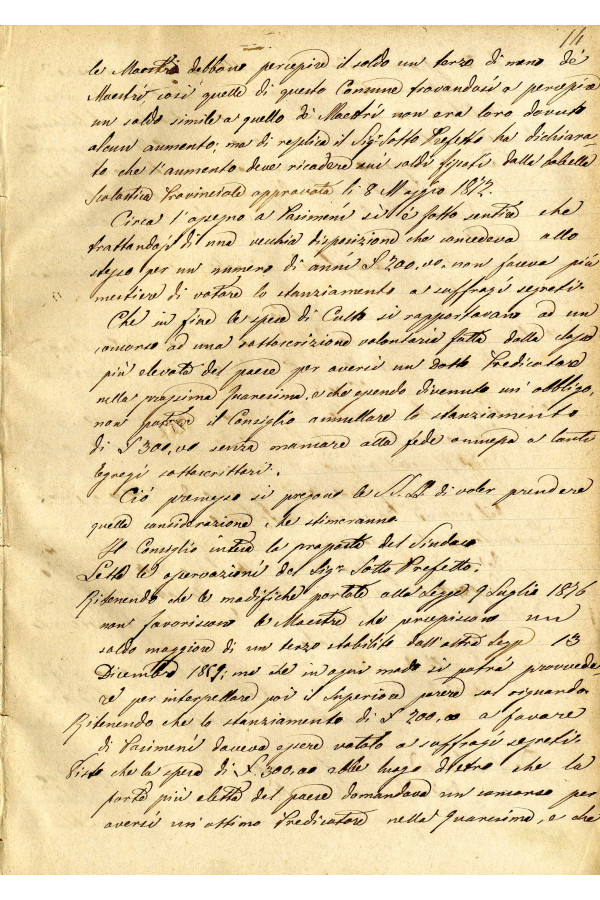 14
le Maestre debbano percepire il soldo un terzo di meno de'
Maestri, così quelle di questo Comune trovandosi a percepire
un soldo simile a quello de' Maestri non era loro dovuto
alcun aumento; ma di replica il Sig.r Sotto Prefetto ha dichiara-
to che l'aumento deve ricadere sui soldi fissati dalla tabella
scolastica Provinciale approvata li 8 Maggio 1872.
Circa l'assegno a Pasimeni si è fatto sentire che
trattandosi di una vecchia disposizione che concedeva allo
stesso per un numero di anni £ 200,00. non faceva più
mestiere di votare lo stanziamento a suffragi segreti.
Che in fine le spese di Culto si rapportavano ad un
concorso ad una sottoscrizione volontaria fatta dalla classe
più elevata del paese per aversi un dotto Predicatore
nella prossima Quaresima, e che quando divenuto un' obbligo,
non potere il Consiglio annullare lo stanziamento
di £ 300,00 senza mancare alla fede annessa a tanti
egregi sottoscrittori.
Ciò premesso si pregano le S.S. L.L. di voler prendere
quella considerazione che stimeranno
Il Consiglio intesa la proposta del Sindaco
Lette le osservazioni del Sig.r Sotto Prefetto.
Ritenendo che le modifiche portate alla legge 9 Luglio 1876
non favoriscono le Maestre che percepiscono un
soldo maggiore di un terzo stabilito dall'altra legge 13
Dicembre 1859; ma che in ogni modo si potrà provvede-
re per interpellare poi il Superiore parere sul riguardo.
Ritenendo che lo stanziamento di £ 200,00 a favore
di Pasimeni doveva essere votato a suffragi segreti.
Visto che la spesa di £. 300,00 ebbe luogo dietro che la
parte più eletta del paese domandava un concorso per
aversi un'ottimo Predicatore nella Quaresima, e che